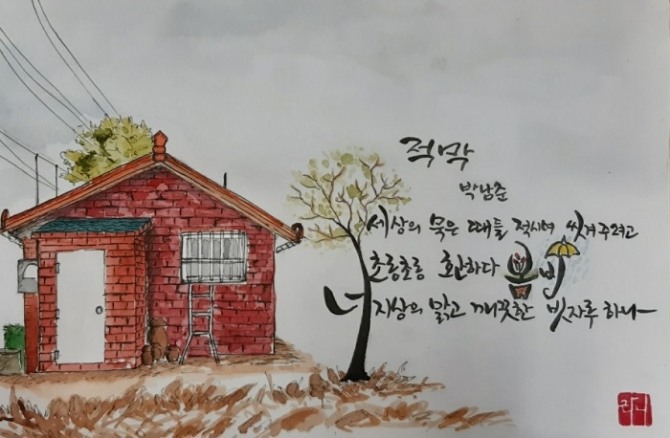 적막
박남준
세상의 묵은 때들 적시며 씻겨주려고
초롱초롱 환하다 봄비
너 지상의 맑고 깨끗한 빗자루 하나
라니